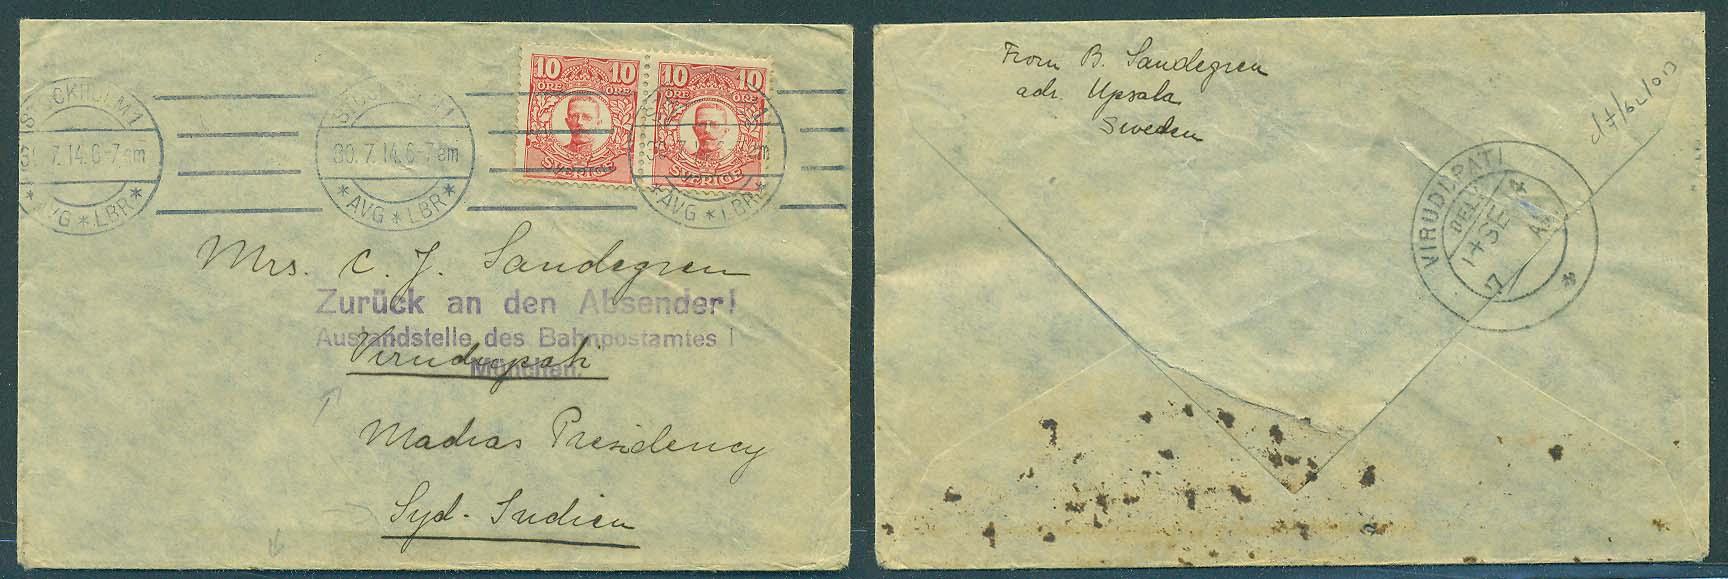 STOCKHOLM 1
30.7.14.6-7 am
* AVG * LBR *
STOCKHOLM 1
30.7.14.6-7 am
* AVG * LBR *
10 10
ÖRE ÖRE
SVERIGE
10 10
ÖRE ÖRE
SVERIGE
30.7.14.6-7 am
* AVG * LBR *
Mrs. C. J. Sandegren
Zurück an den Absender!
Auslandstelle des Bahnpostamtes 1
Virudupati
München.
Madras Presidency
Syd-Indien
From B. Sandegren
adr. Upsala
Sweden
VIRUDUPATI
17 SE